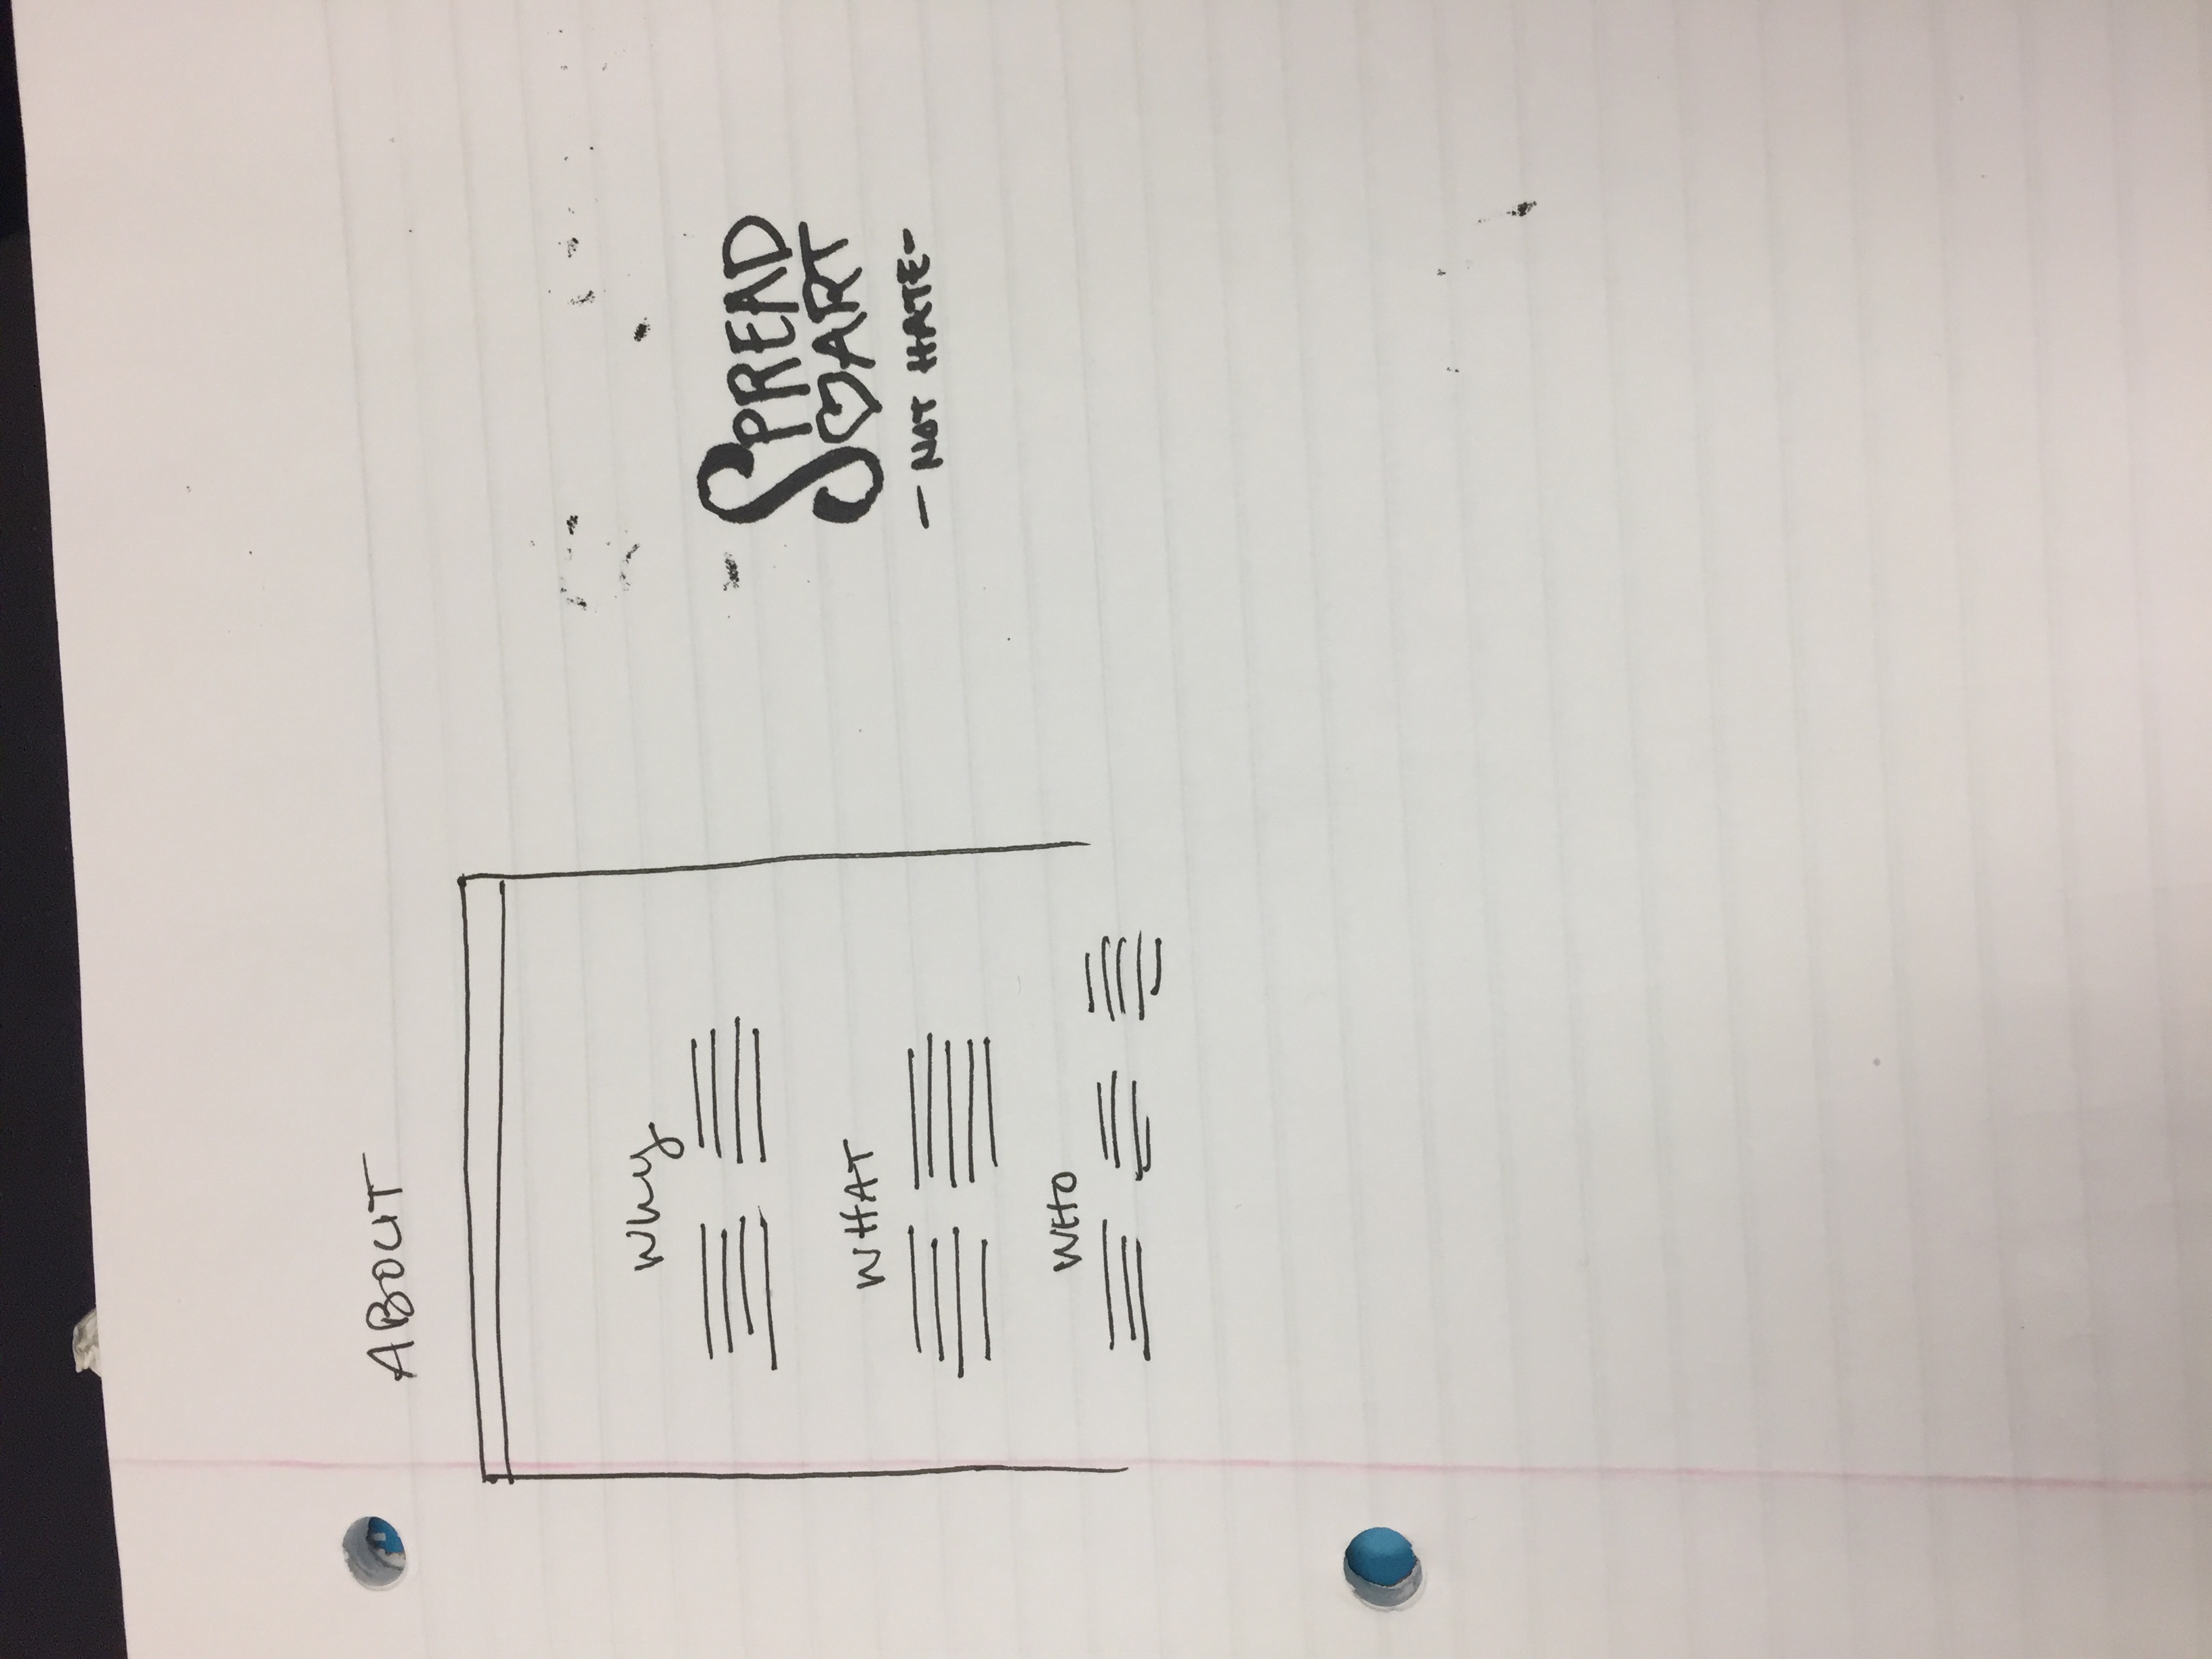 ABOUT
Why
WHAT
WHO
SPREAD
♡ART
- NOT HATE -